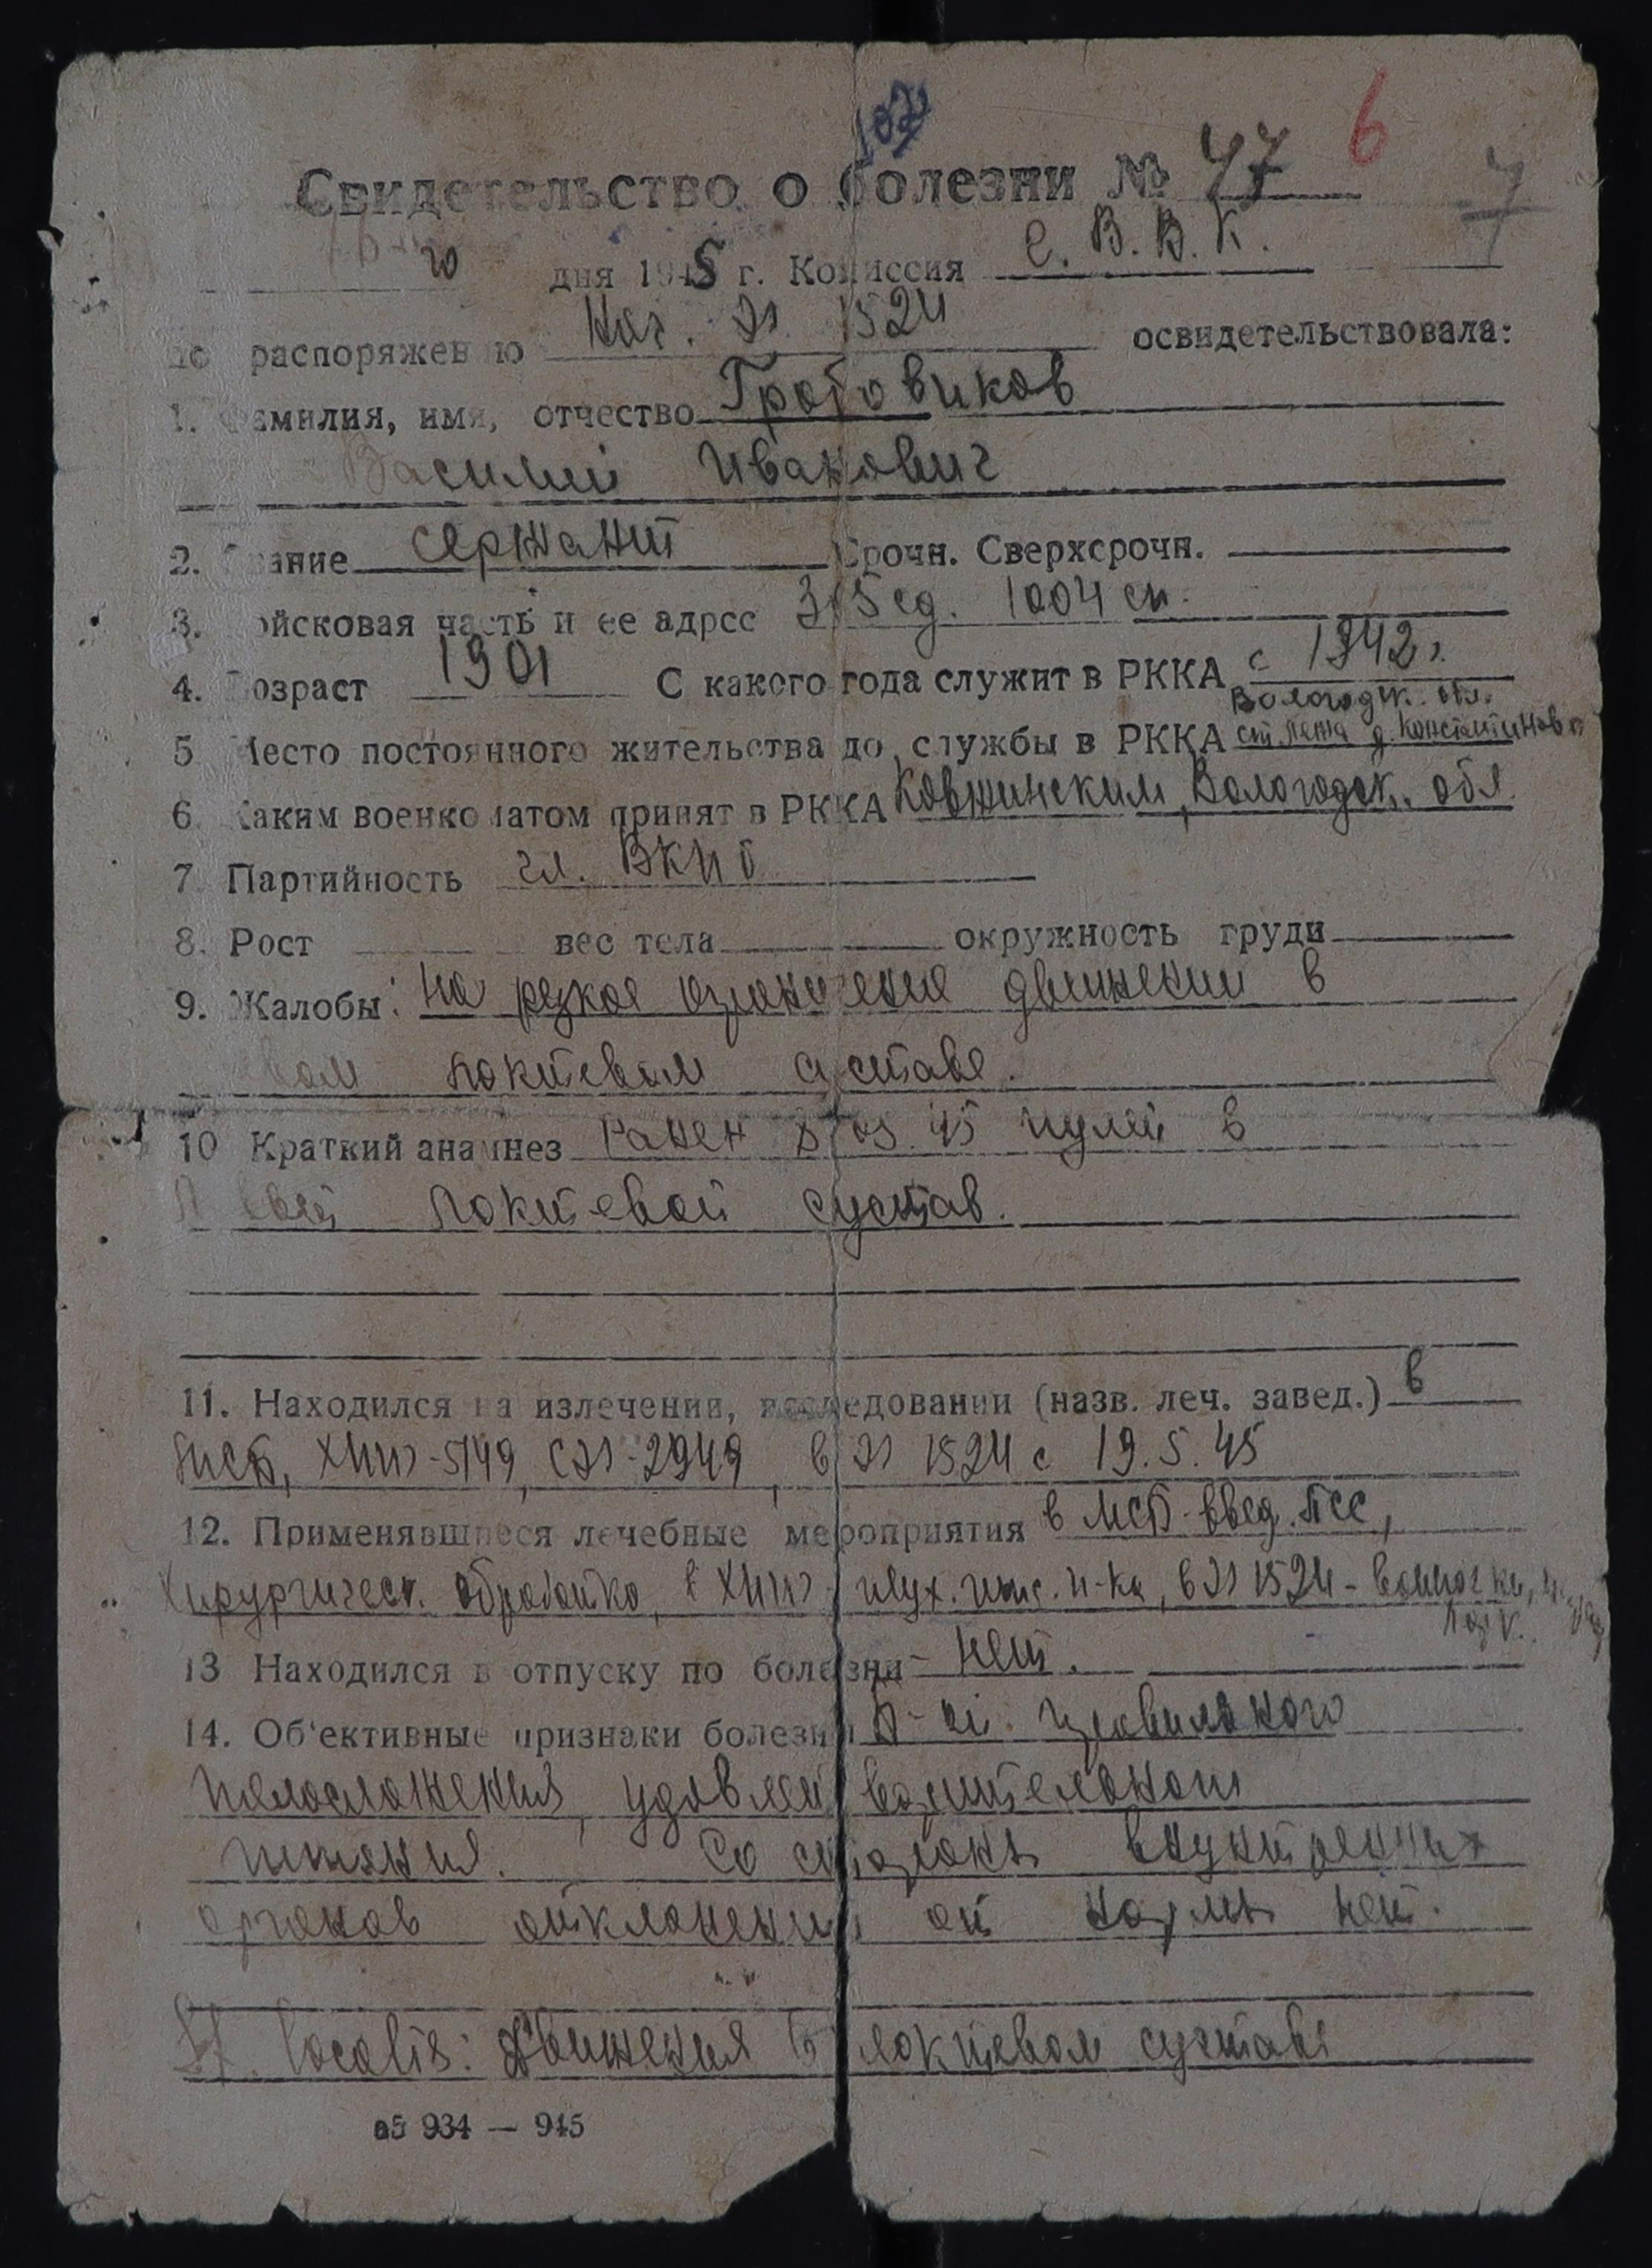 6
Свидетельство о болезни № 47
7
го дня 1945 г. Комиссия С. В. В. К.
По распоряжению Нач. ЭГ 1524 освидетельствовала:
1. Фамилия, имя, отчество Гробовиков
Василий Иванович
2. Звание сержант Срочн. Сверхсрочн.
3. Войсковая часть и ее адрес 315 сд. 1004 сп.
4. Возраст 1901 С какого года служит в РККА с 1942 г.
Вологодск. обл.
5 Место постоянного жительства до службы в РККА ст. Пежа д. Константиново
6. Каким военкоматом принят в РККА Ковжинским, Вологодск. обл.
7. Партийность чл. ВКПб
8. Рост вес тела окружность груди
9. Жалобы: На резкое ограничение движении в
левом локтевом суставе.
10 Краткий анамнез Ранен 45 пулей в
Левый локтевой сустав.
11. Находился на излечении, исследовании (назв. леч. завед.) в
МСБ, ХППГ-5149, СЭГ-2949, в ЭГ 1524 с 19.5.45
12. Применявшиеся лечебные мероприятия в МСБ-введ. ПСС,
Хирургическ. обработка, в ХППГ глух. гипс. п-ка, в ЭГ 1524 - ванночки,
13 Находился в отпуску по болезни - Нет.
14. Об'ективные признаки болезни Б-ой. правильного
телосложения, удовлетворительного
питания. Со стороны внутренних
органов отклонении от нормы нет.
St. localis: Движения в локтевом суставе
аб 934 — 945